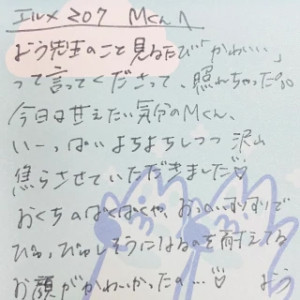 エルメ 207 Mくんへ
よう先生のこと見るたび「かわいい」
って言ってくださって、照れちゃった
今日は甘えたい気分のMくん、
いーっぱいよちよちしつつ沢山
焦らさせていただきました♡
おくちのぱくぱくや、おっぱいすりすりで
びゅっびゅしそうになるのを耐えてる
お顔がかわいかったの…♡ よう